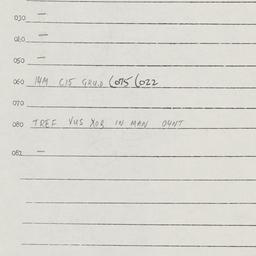 030 —
040 —
050 —
060 14M C15 GRUD (075 (022
070
080 TREE VUS XOR IN MAN
081 —